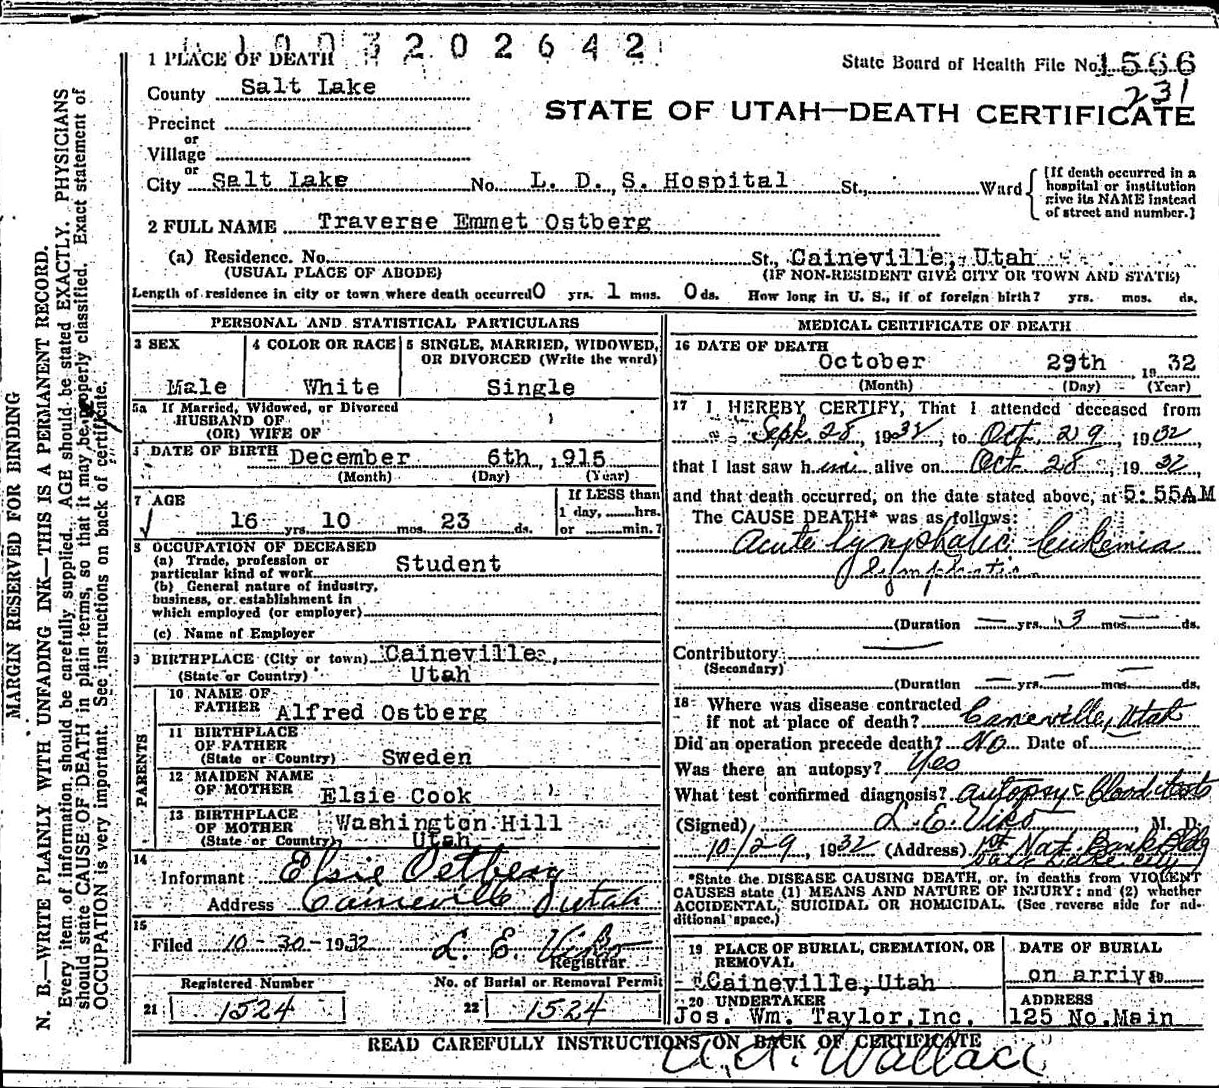 1003202642
1 PLACE OF DEATH
State Board of Health File No. 1566
231
County Salt Lake
STATE OF UTAH—DEATH CERTIFICATE
Precinct
or
Village
or
City Salt Lake No. L. D. S. Hospital St., Ward
[If death occurred in a hospital or institution give its NAME instead of street and number.]
2 FULL NAME Traverse Emmet Ostberg
(a) Residence. No. St., Caineville, Utah
(USUAL PLACE OF ABODE) (IF NON-RESIDENT GIVE CITY OR TOWN AND STATE)
Length of residence in city or town where death occurred 0 yrs. 1 mos. 0 ds. How long in U. S., if of foreign birth? yrs. mos. ds.
PERSONAL AND STATISTICAL PARTICULARS
3 SEX
Male
4 COLOR OR RACE
White
5 SINGLE, MARRIED, WIDOWED,
OR DIVORCED (Write the word)
Single
5a If Married, Widowed, or Divorced
HUSBAND OF
(OR) WIFE OF
DATE OF BIRTH December 6th, 1915
(Month) (Day) (Year)
7 AGE
16 yrs. 10 mos. 23 ds.
If LESS than
1 day, hrs.
or min.?
8 OCCUPATION OF DECEASED
(a) Trade, profession or
particular kind of work Student
(b) General nature of industry,
business, or establishment in
which employed (or employer)
(c) Name of Employer
9 BIRTHPLACE (City or town) Caineville,
(State or Country) Utah
PARENTS
10 NAME OF
FATHER Alfred Ostberg
11 BIRTHPLACE
OF FATHER
(State or Country) Sweden
12 MAIDEN NAME
OF MOTHER Elsie Cook
13 BIRTHPLACE
OF MOTHER Washington Hill
(State or Country) Utah
14
Informant Elsie Ostberg
Address Caineville Utah
15
Filed 10-30-1932 L. E. Viko
Registrar
Registered Number No. of Burial or Removal Permit
21 1524 22 1524
MEDICAL CERTIFICATE OF DEATH
16 DATE OF DEATH
October 29th 1932
(Month) (Day) (Year)
17 I HEREBY CERTIFY, That I attended deceased from
Sept. 28, 1932, to Oct. 29, 1932,
that I last saw him alive on Oct 28, 1932,
and that death occurred, on the date stated above, at 5:55AM
The CAUSE DEATH* was as follows:
Acute lymphatic leukemia
(Duration — yrs. 3 mos. — ds.
Contributory —
(Secondary)
(Duration — yrs. — mos. — ds.
18 Where was disease contracted
if not at place of death? Caneville, Utah
Did an operation precede death? No Date of
Was there an autopsy? Yes
What test confirmed diagnosis? autopsy & blood tests
(Signed) L. E. Viko, M. D.
10/29, 1932 (Address) 1st Nat. Bank Bldg
Salt Lake City
*State the DISEASE CAUSING DEATH, or, in deaths from VIOLENT
CAUSES state (1) MEANS AND NATURE OF INJURY; and (2) whether
ACCIDENTAL, SUICIDAL OR HOMICIDAL. (See reverse side for ad-
ditional space.)
19 PLACE OF BURIAL, CREMATION, OR
REMOVAL
Caineville, Utah
DATE OF BURIAL
on arriva
20 UNDERTAKER
Jos. Wm. Taylor, Inc.
ADDRESS
125 No. Main
READ CAREFULLY INSTRUCTIONS ON BACK OF CERTIFICATE
Wallace
MARGIN RESERVED FOR BINDING
N. B.—WRITE PLAINLY WITH UNFADING INK—THIS IS A PERMANENT RECORD.
Every item of information should be carefully supplied. AGE should be stated EXACTLY. PHYSICIANS
should state CAUSE OF DEATH in plain terms, so that it may be properly classified. Exact statement of
OCCUPATION is very important. See instructions on back of certificate.